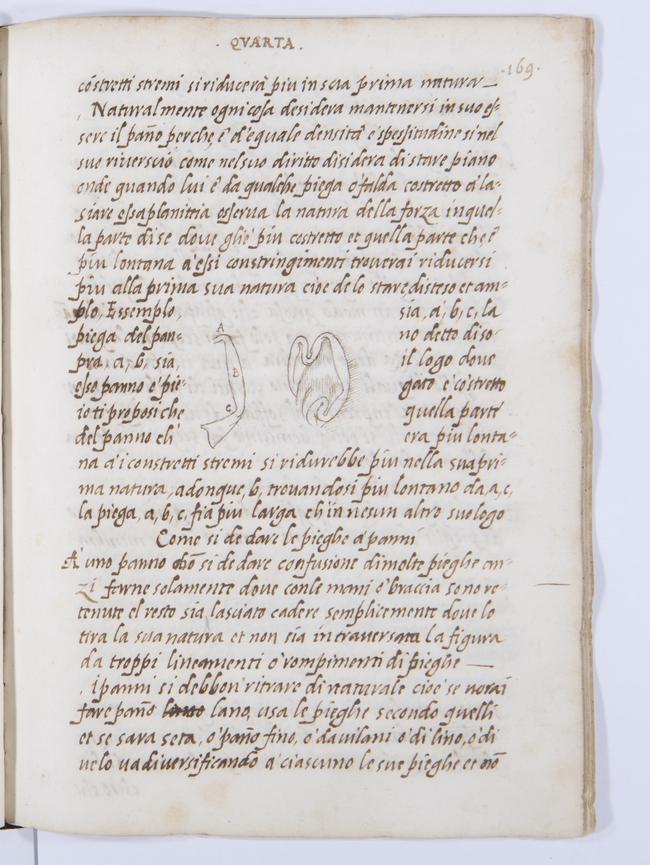 · QVARTA ·
·169·
cōstretti stremi si riducera piu in sua prima natura—
. Naturalmente ogni cosa desidera mantenersi in suo es=
sere il pāno perche é d'equale densita é spessitudine si nel
suo riuerscio come nel suo diritto disidera di stare piano
onde quando lui é da qualche piega o falda costretto a la=
siare essa planitia osserua la natura della forza in quel=
la parte di se doue glié piu costretto et quella parte che é
piu lontana a essi constringimenti trouerai ridursi
piu alla prima sua natura cioe de lo stare disteso et am=
plo, Essemplo, sia, a, b, c, la
piega del pan= no detto diso=
pra, a, b, sia, il logo doue
esso panno é pie= gato é costretto
io ti proposi che quella parte
del panno ch' era piu lonta=
A
B
C
na a i constretti stremi si ridurebbe piu nella sua pri=
ma natura, adonque, b, trouandosi piu lontano da, a, c,
la piega, a, b, c, fia piu larga ch' in nesun altro suo logo
Come si de dare le pieghe a' panni
A' uno panno nō si de dare confusione di molte pieghe an=
zi farne solamente doue con le mani o' braccia sono re=
tenute el resto sia lasciato cadere semplicemente doue lo
tira la sua natura et non sia intrauersata la figura
da troppi lineamenti o' rompimenti di pieghe —
. i panni si debbon' ritrare di naturale cioe se uorai
fare pāno lano, usa le pieghe secondo quelli
et se sara seta, o' pāno fino, o' da uilani o' di lino, o' di
uelo ua diuersificando a' ciascuno le sue pieghe et nō